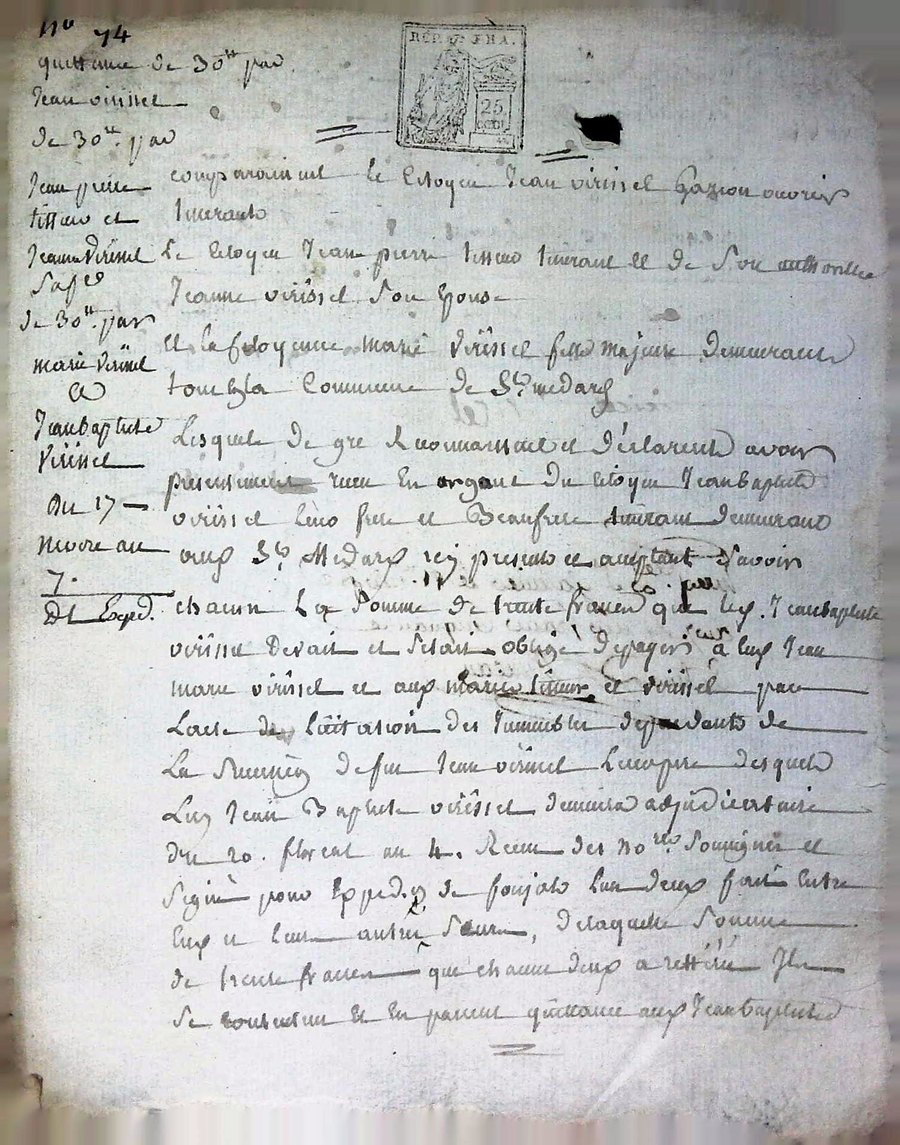 no 74
quittance de 30tt par
Jean virissel
de 30tt. par
Jean pierre
tisseur et
Jeanne Virissel
de 30tt. par
marie Virissel
a
Jean baptiste
Virissel
Du 17
nivose an
7.
Dt Exped.
REP. FRA.
25
CENT.
comparaissent le Citoyen Jean virissel garçon ouvrier
Le Citoyen Jean pierre et de son authorité
Jeanne virissel son Epouse
Et la Citoyenne marie Virissel fille majeure demeurant
tous la Commune de St. medard
Lesquels de gré Reconnaissent et déclarent avoir
presentement reçu En argent du Citoyen Jean Baptiste
virissel frere et Beaufrere demeurant
aux St. Medard icy present et acceptant Savoir
chacun La Somme de trente francs que led. Jean baptiste
virissel Devait et s'etait obligé de payer à Jean
marie virissel et aux maries et virissel par
Lacte de Licitation des immeubles dependants de
La de feu Jean virissel Leur pere desquels
Led. Jean Baptiste virissel demeura adjudicataire
du 20. floreal an 4. Recu des no.res Soussignés et
Signé pour Exped.on de foujols Lun deux fait Entre
Eux et leur autre Soeur, delaquelle Somme
de trente francs que chacun deux a rettiré Ils
Se contentent Et En passent quittance aud. Jean baptiste